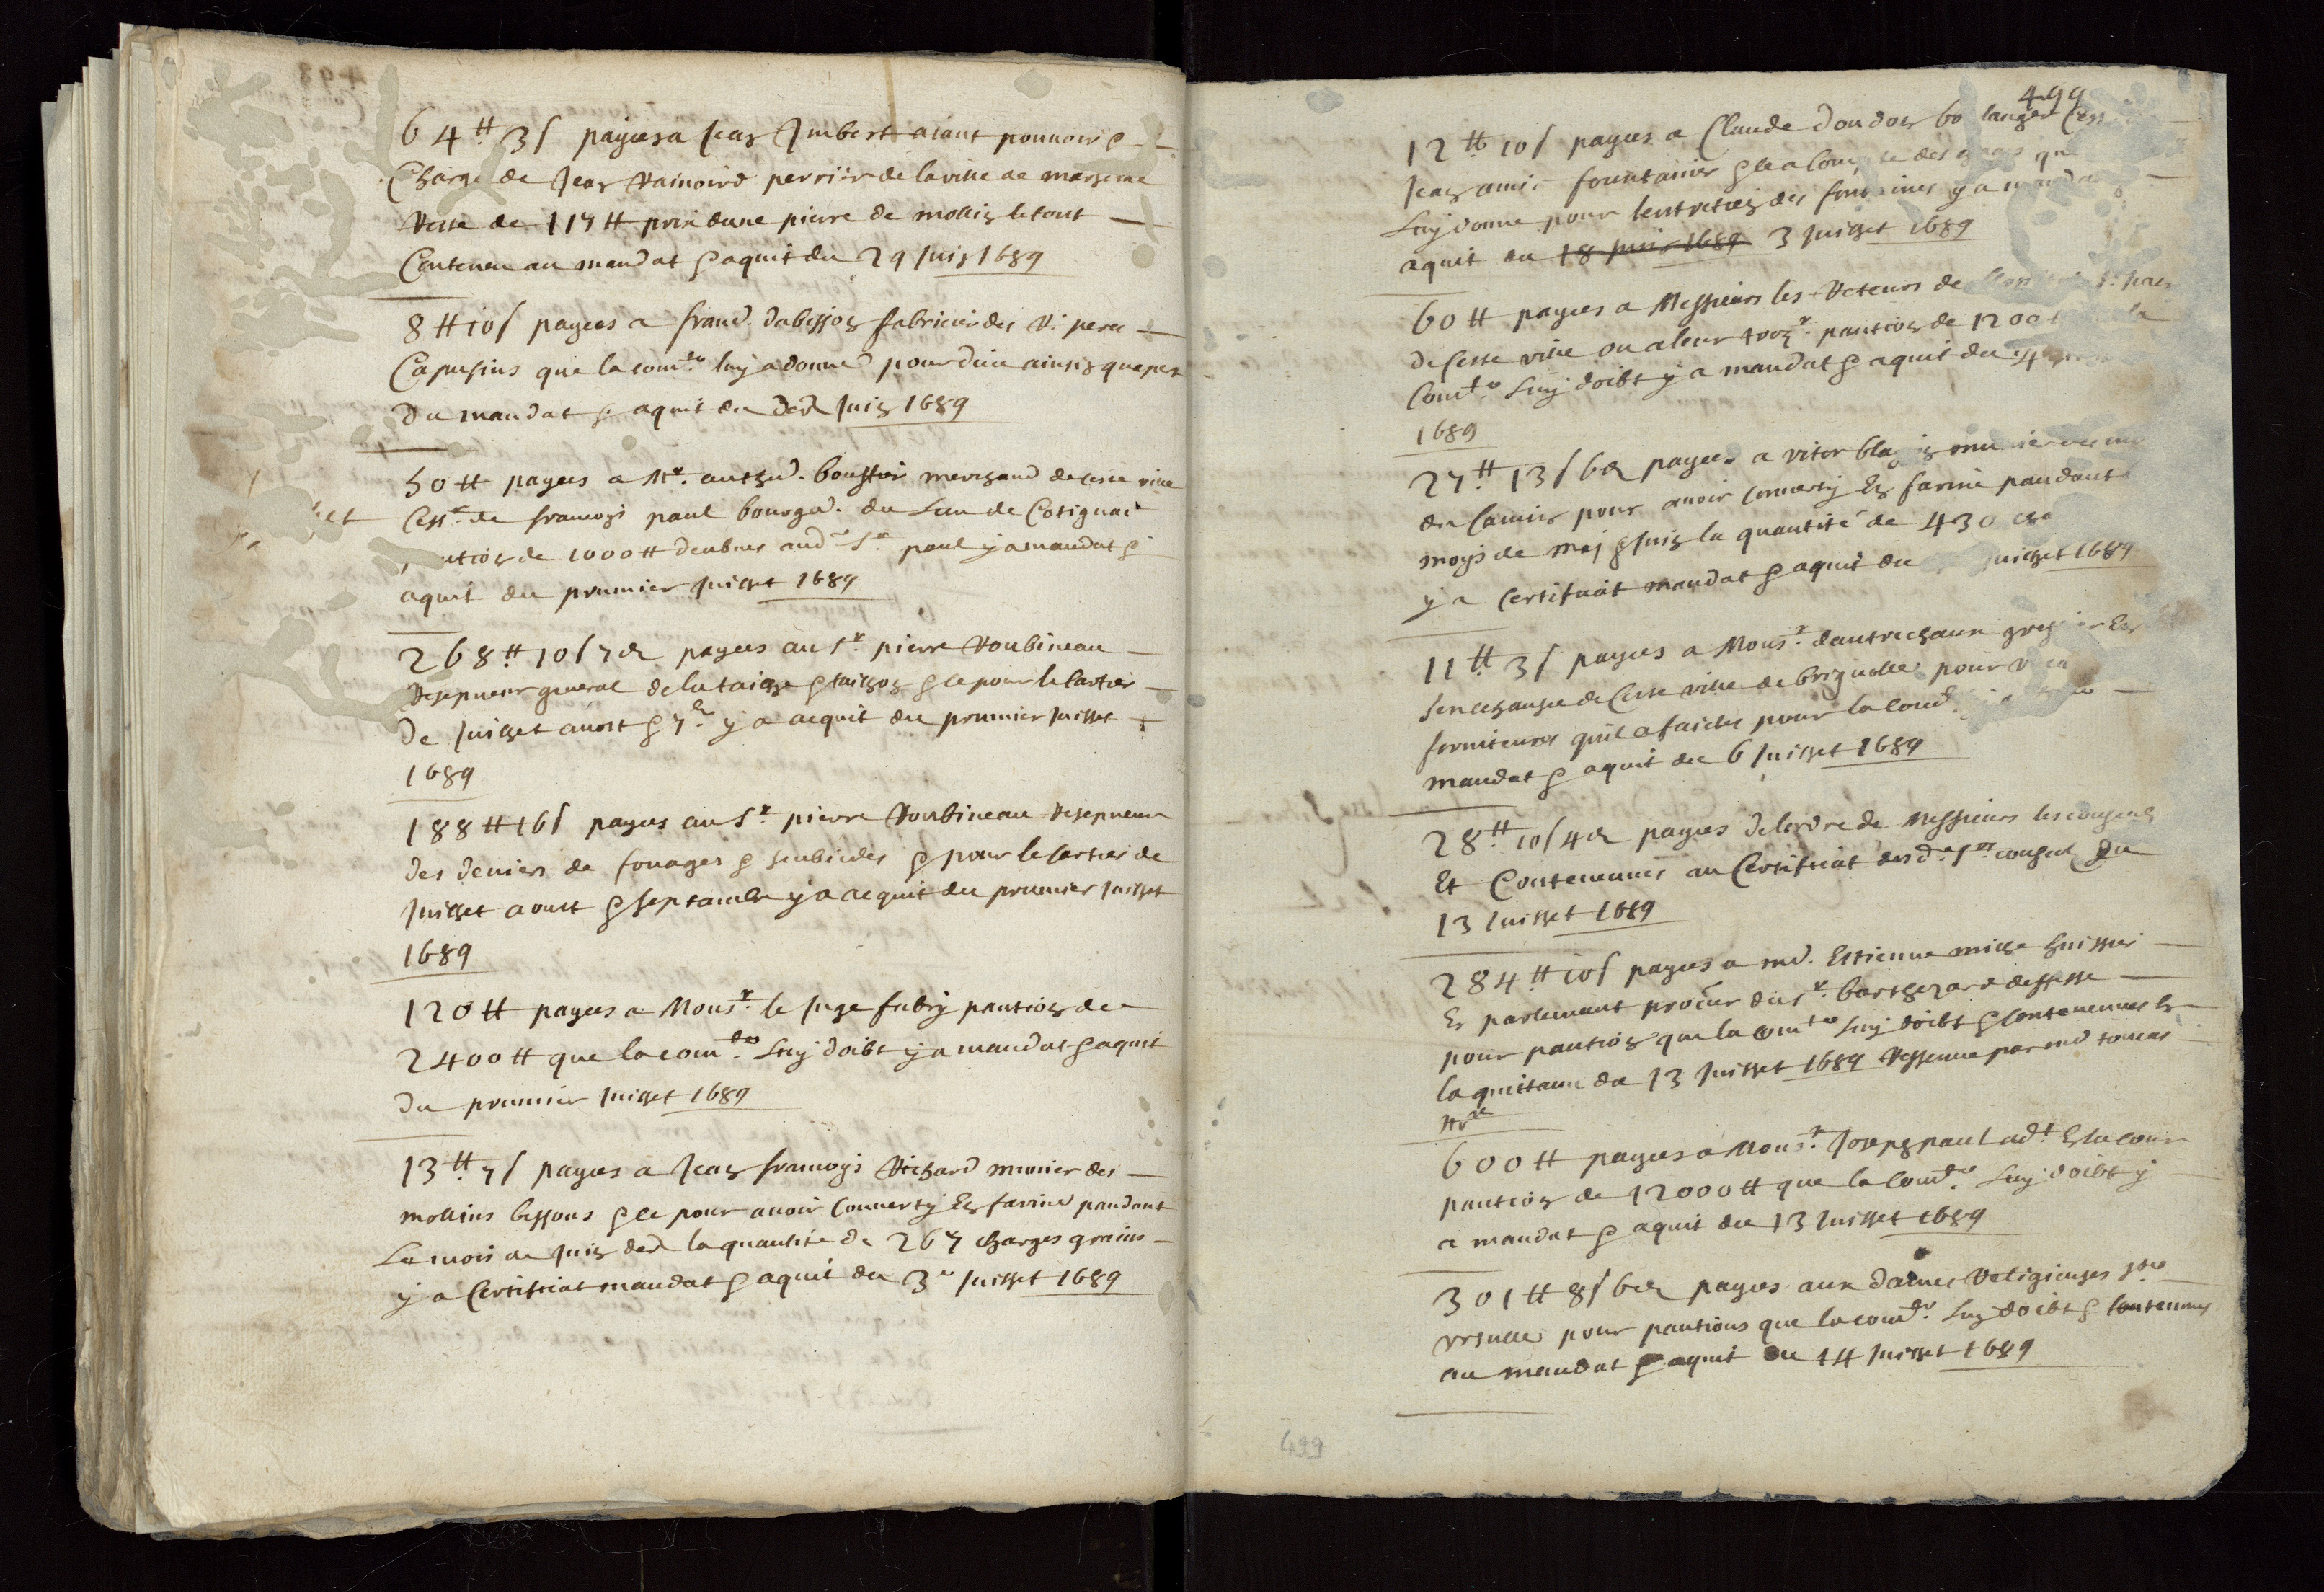 64 ₶ 3 s payees a Jean Imbert aiant pouuoir &
Charge de Jean Rainoird perriir de la ville de marseille
Reste de 117 ₶ prix dune pierre de mollin le tout
Contenu au mandat & aquit du 29 Juin 1689
8 ₶ 10 s payees a francs dabisson fabricier des R. pera
Capusins que la com.té luy a donné pour dieu ainsin que pert
du mandat & aquit du der Juin 1689
50 ₶ payees a Mr. anthnd. boussier merchand de ceste ville
Cessr. de francois paul bourgd. du Luu de Cotignac
de 1000 ₶ deubues aud. Sr. paul y a mandat &
aquit du prumier Juillet 1689
268 ₶ 10 s 7 d payees au Sr. pierre Roubineau
Resepueur general de la taille & taillon & ce pour le Cartier
de Juillet auost & 7bre y a acquit du prumier Juillet
1689
188 ₶ 16 s payees au Sr. pierre Roubineau Resepueur
des deniers de fouages & subcides & pour le Cartier de
Juillet aoust & septambre y a acquit du prumier Juillet
1689
120 ₶ payees a Monsr. le Juge fabry pantion de
2400 ₶ que la com.té Luy doibt y a mandat & aquit
du prumier Juillet 1689
13 ₶ 7 s payees a Jean francoys Richard munier des
mollins bessons & ce pour auoir Conuerty En farine pandant
Le mois de Juin der la quantité de 267 charges grains
y a Certificat mandat & aquit du 3e Juillet 1689
499
12 ₶ 10 s payees a Claude dondon bolanger
Jean amic fountainier & ce a Compte des gages que
Luy donne pour lentretien des fontaines y a manda
aquit du 18 Juin 1689 3 Juillet 1689
60 ₶ payees a Messieurs les Reteurs de
de Ceste ville ou a leur trezr. pantion de 1200
Com.té Luy doibt y a mandat & aquit du 4
1689
27 ₶ 13 s 6 d payees a vitor munier
du Camin pour auoir Conuerty En farine pandant
moys de may & Juin la quantité de 430
y a Certificat mandat & aquit du Juillet 1689
11 ₶ 3 s payees a Monsr. dautrechaux greffier En
Senechausse de Ceste ville de brignolle pour
fornitures quil a faictes pour la Com.té
mandat & aquit du 6 Juillet 1689
28 ₶ 10 s 4 d payees de lordre de Messieurs les Consuls
Et Contenues au Certificat desd. Srs. consul du
13 Juillet 1689
284 ₶ 10 s payees a md. Estienne mille huissier
En parlemant procur du Sr. barthezard dessesse
pour pantion que la com.té Luy doibt & Contenues En
la quittance du 13 Juillet 1689 Ressue par md toucas
Nre
600 ₶ payees a Monsr. Joseph paul adt. En la Cour
pantion de 12000 ₶ que la Com.té Luy doibt y
a mandat & aquit du 13 Juillet 1689
301 ₶ 8 s 6 d payees aux dames Religieuses Ste
vrsulle pour pantions que la com.té Luy doibt & Contenues
au mandat & aquit du 14 Juillet 1689
499